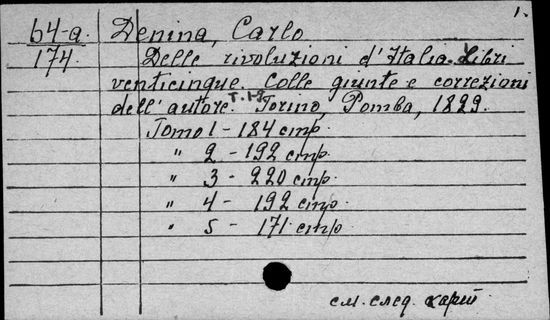 1.
64-a. Denina, Carlo
174 Delle rivoluzioni d'Italia. Libri
venticinque. Colle giunte e correzioni
dell' autore. T. 1-9 Torino, Pomba, 1829.
Tomo 1 - 184 стр.
" 2 - 192 стр.
" 3 - 220 стр.
" 4 - 192 стр.
" 5 - 171 стр.
см. след. карт